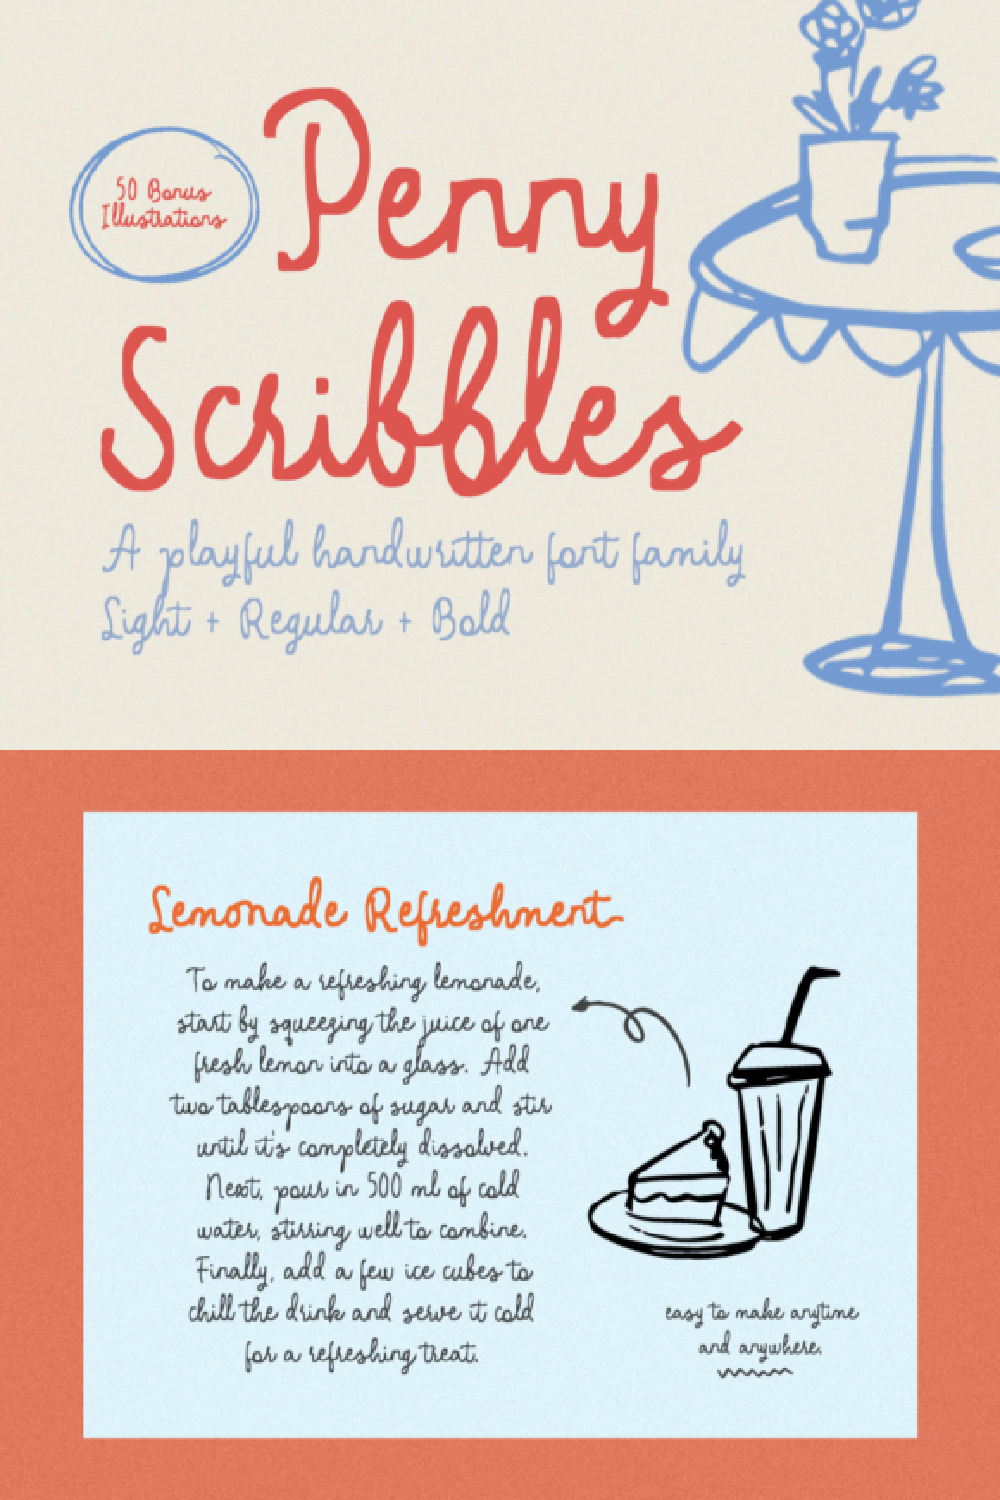 50 Bonus
Illustrations
Penny
Scribbles
A playful handwritten font family
Light + Regular + Bold
Lemonade Refreshment
To make a refreshing lemonade,
start by squeezing the juice of one
fresh lemon into a glass. Add
two tablespoons of sugar and stir
until it's completely dissolved.
Next, pour in 500 ml of cold
water, stirring well to combine.
Finally, add a few ice cubes to
chill the drink and serve it cold
for a refreshing treat.
easy to make anytime
and anywhere.